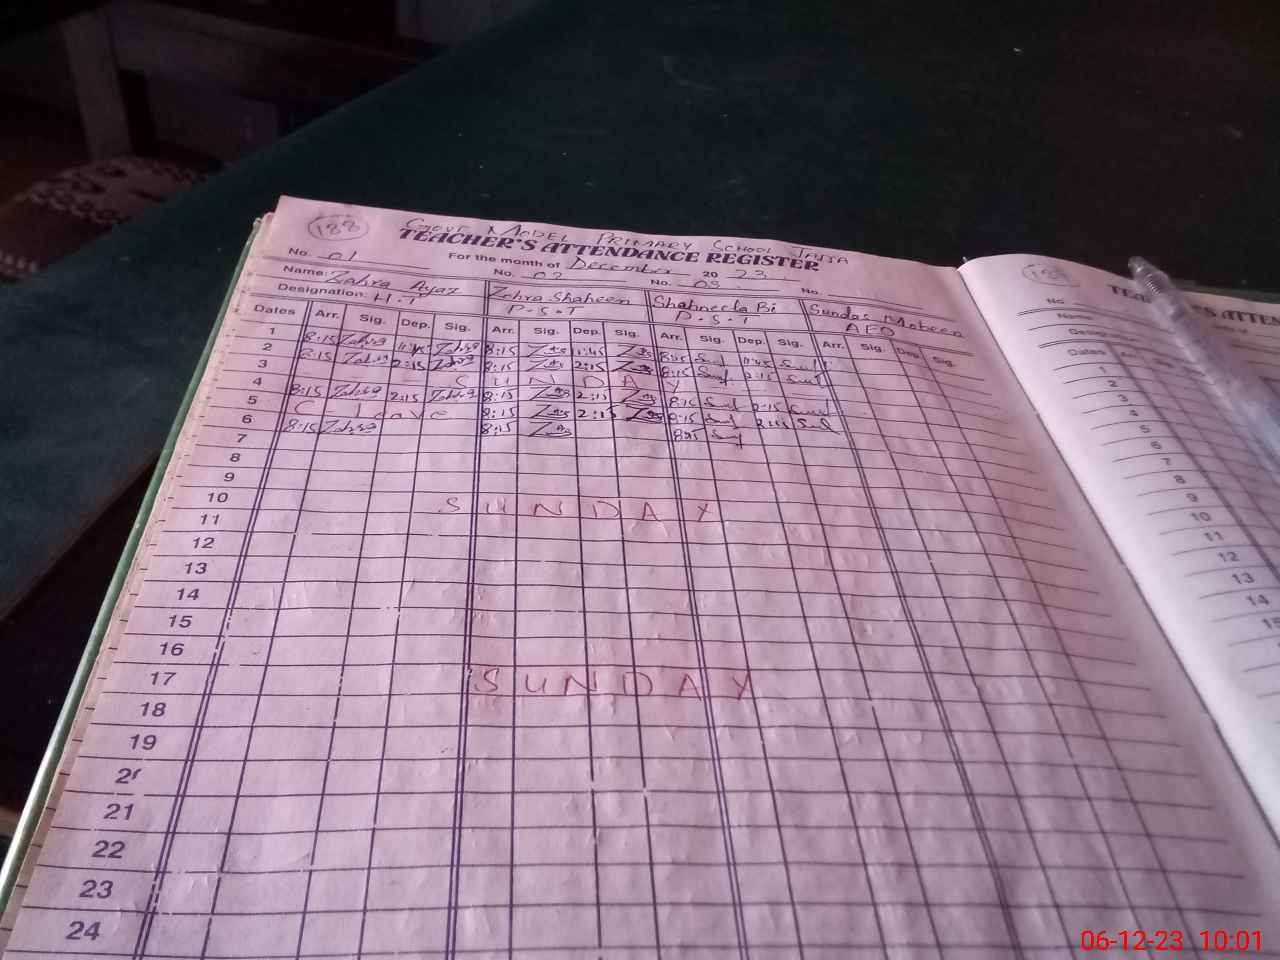 188
GOVT MODEL PRIMARY SCHOOL JATTA
TEACHER'S ATTENDANCE REGISTER
For the month of December 20 23
No. 01 No. 02 No. 03 No.
Name: Zahra Ayaz Zohra Shaheen Shahneela Bi Sundas Mobeen
Designation: H.T P.S.T P.S.T AEO
Dates Arr. Sig. Dep. Sig. Arr. Sig. Dep. Sig. Arr. Sig. Dep. Sig. Arr. Sig. Dep. Sig.
1 8:15 Zahra 11:45 Zahra 8:15 11:45 8:15 11:45
2 8:15 Zahra 2:15 Zahra 8:15 2:15 8:15 2:15
3 SUNDAY
4 8:15 Zahra 2:15 Zahra 8:15 2:15 8:15 2:15
5 C-leave 8:15 2:15 8:15 2:15
6 8:15 Zahra 8:15 8:15
7
8
9
10 SUNDAY
11
12
13
14
15
16
17 SUNDAY
18
19
20
21
22
23
24
No.
Name
Dates
1
2
3
4
5
6
7
8
9
10
11
12
13
14
06-12-23 10:01